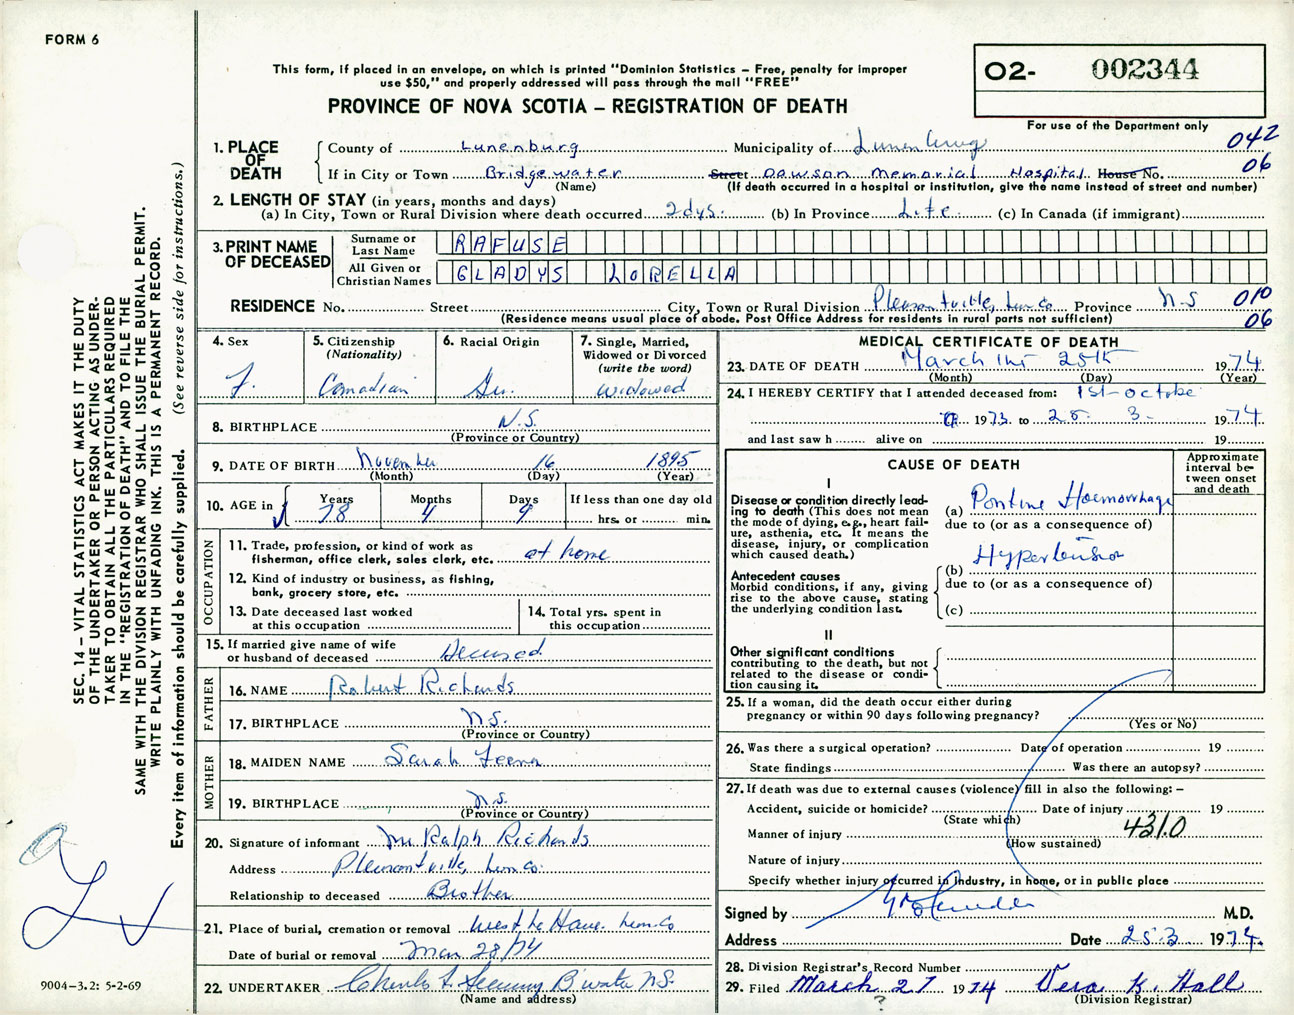 FORM 6
This form, if placed in an envelope, on which is printed "Dominion Statistics – Free, penalty for improper
use $50," and properly addressed will pass through the mail "FREE"
PROVINCE OF NOVA SCOTIA – REGISTRATION OF DEATH
O2- 002344
For use of the Department only
SEC. 14 – VITAL STATISTICS ACT MAKES IT THE DUTY
OF THE UNDERTAKER OR PERSON ACTING AS UNDER-
TAKER TO OBTAIN ALL THE PARTICULARS REQUIRED
IN THE "REGISTRATION OF DEATH" AND TO FILE THE
SAME WITH THE DIVISION REGISTRAR WHO SHALL ISSUE THE BURIAL PERMIT.
WRITE PLAINLY WITH UNFADING INK. THIS IS A PERMANENT RECORD.
Every item of information should be carefully supplied. (See reverse side for instructions.)
9004–3.2: 5-2-69
1. PLACE OF DEATH
County of Lunenburg Municipality of Lunenburg 042
If in City or Town Bridgewater Street Dawson Memorial Hospital House No. 06
(Name) (If death occurred in a hospital or institution, give the name instead of street and number)
2. LENGTH OF STAY (in years, months and days)
(a) In City, Town or Rural Division where death occurred 2dys. (b) In Province Life (c) In Canada (if immigrant)
3. PRINT NAME OF DECEASED
Surname or Last Name RAFUSE
All Given or Christian Names GLADYS LORELLA
RESIDENCE No. Street City, Town or Rural Division Pleasantville, Lun Co Province N-S 010
(Residence means usual place of abode. Post Office Address for residents in rural parts not sufficient) 06
4. Sex F.
5. Citizenship (Nationality) Canadian
6. Racial Origin
7. Single, Married, Widowed or Divorced (write the word) Widowed
8. BIRTHPLACE N.S.
(Province or Country)
9. DATE OF BIRTH November 16 1895
(Month) (Day) (Year)
10. AGE in Years Months Days If less than one day old
78 4 9 hrs. or min.
OCCUPATION
11. Trade, profession, or kind of work as
fisherman, office clerk, sales clerk, etc. at home
12. Kind of industry or business, as fishing,
bank, grocery store, etc.
13. Date deceased last worked
at this occupation
14. Total yrs. spent in
this occupation
15. If married give name of wife
or husband of deceased Deceased
FATHER
16. NAME Robert Richards
17. BIRTHPLACE N.S.
(Province or Country)
MOTHER
18. MAIDEN NAME Sarah
19. BIRTHPLACE N.S.
(Province or Country)
20. Signature of informant Mr Ralph Richards
Address Pleasantville, Lun Co.
Relationship to deceased Brother
21. Place of burial, cremation or removal West La Have Lun. Co
Date of burial or removal Mar 28/74
22. UNDERTAKER Charles B'water N.S.
(Name and address)
MEDICAL CERTIFICATE OF DEATH
23. DATE OF DEATH March 25th 1974
(Month) (Day) (Year)
24. I HEREBY CERTIFY that I attended deceased from: 1st October
1973. to 25. 3. 1974
and last saw h alive on 19
CAUSE OF DEATH
Approximate
interval be-
tween onset
and death
I
Disease or condition directly lead-
ing to death (This does not mean
the mode of dying, e.g., heart fail-
ure, asthenia, etc. It means the
disease, injury, or complication
which caused death.)
(a) Pontine Haemorrhage
due to (or as a consequence of)
Antecedent causes
Morbid conditions, if any, giving
rise to the above cause, stating
the underlying condition last.
(b) Hypertension
due to (or as a consequence of)
(c)
II
Other significant conditions
contributing to the death, but not
related to the disease or condi-
tion causing it.
25. If a woman, did the death occur either during
pregnancy or within 90 days following pregnancy?
(Yes or No)
26. Was there a surgical operation? Date of operation 19
State findings Was there an autopsy?
27. If death was due to external causes (violence) fill in also the following: –
Accident, suicide or homicide? Date of injury 19
(State which)
Manner of injury 431.0
(How sustained)
Nature of injury
Specify whether injury occurred in Industry, in home, or in public place
Signed by M.D.
Address Date 25.3. 1974.
28. Division Registrar's Record Number
29. Filed March 27 1974 Vera K. Hall
? (Division Registrar)